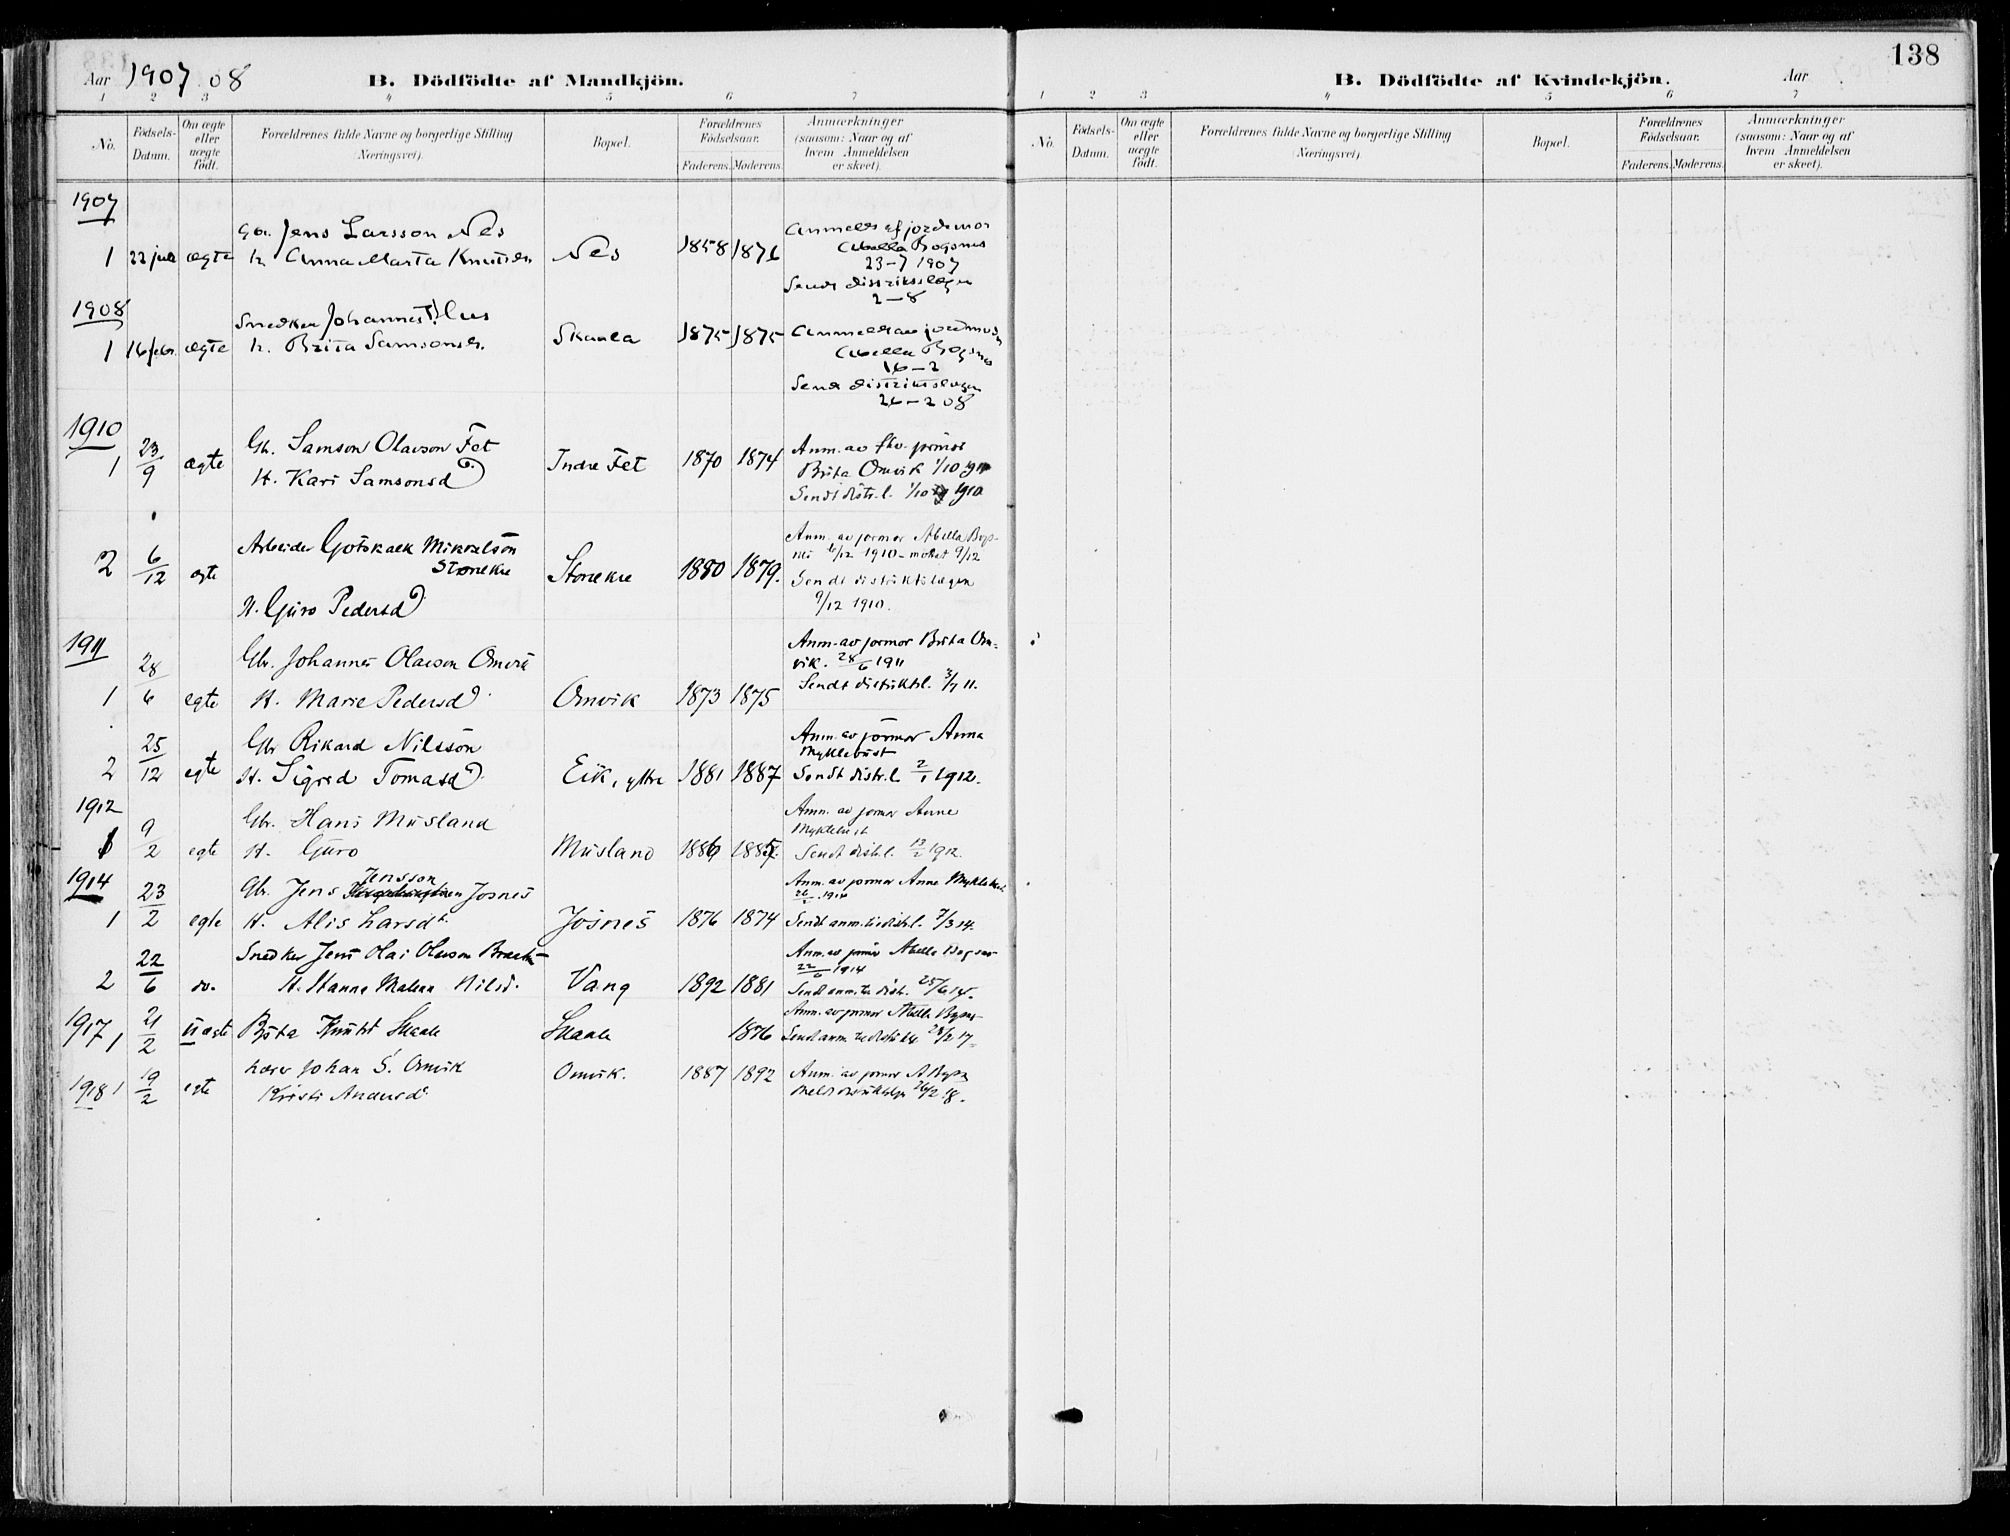 138
Aar 1907 08 B. Dödfödte af Mandkjön.
1 2 3 4 5 6 7
No. Födsels-Datum. Om ægte eller uægte födt. Forældrenes fulde Navne og borgerlige Stilling (Næringsvei). Bopæl. Forældrenes Födselsaar. Faderens. Moderens. Anmærkninger (saasom: Naar og af hvem Anmeldelsen er skeet).
1907
Gbr. Jens Larsson Nes
1 22 juli ægte h. Anna Marta Knutsdr Nes 1858 1876
Anmeldt af jordemor
Abella Bogsnes
23-7 1907
Sendt distriktslægen
2-8
1908
Snedker Johannes
1 16 febr. ægte h. Brita Samsonsdr. Skaala 1875 1875
Anmeldt av jordmor
Abella Bogsnes
16-2
Sendt distriktslægen
26-2 08
1910
1 23/9 ægte Gbr. Samson Olavson Fet
H. Kari Samsonsd Indre Fet 1870 1874
Anm. av fhv. jormor
Brita Omvik 1/10 1910
Sendt distr.l. 1/10 1910
2 6/12 egte Arbeider Gotskalk Mikkelson
Stonekre
H. Guro Pedersd Stonekre 1880 1879.
Anm. av jormor Abella Bogs-
nes 6/12 1910 - motat 9/12
Sendt distriktslægen
9/12 1910.
1911
1 28/6 egte Gbr. Johannes Olavson Omvik
H. Marie Pedersd Omvik 1873 1875
Anm. av jormor Brita Om-
vik. 28/6 1911
Sendt distriktsl. 3/7 11.
2 25/12 egte Gbr Rikard Nilsson
H. Sigrid Tomasd Eik, ytre 1881 1887
Anm. av jormor Anna
Myklebust
Sendt distr.l. 2/1 1912.
1912
1 9/2 egte Gbr. Hans Musland
H. Guro Musland 1886 1885
Anm. av jormor Anne
Myklebust
Sendt distr.l. 13/2 1912.
1914
Jensson
1 23/2 egte Gbr. Jens Josnes
H. Alis Larsdt. Josnes 1876 1874
Anm. av jormor Anne Myklebust
26/2 1914
Sendt anm. til distr.l. 7/3 14.
2 22/6 do. Snedker Jens Olai Olavson
H. Hanna Malena Nilsd. Vang 1892 1881
Anm. av jormor Abella Bogsnes
22/6 1914
Sendt anm. til distr. 25/6 14.
1917 1 21/2 uægte Brita Knutsdt Skaale Skaale 1876
Anm. av jormor Abella Bogsnes
Sendt anm. til distr.l. 28/2 17.
1918 1 19/2 egte Lærer Johan S. Omvik
Kristi Andersd Omvik. 1887 1892
Anm. av jormor A Bogsn
Meldt distriktslege 26/2 18.
B. Dödfödte af Kvindekjön. Aar
1 2 3 4 5 6 7
No. Födsels-Datum. Om ægte eller uægte födt. Forældrenes fulde Navne og borgerlige Stilling (Næringsvei). Bopæl. Forældrenes Födselsaar. Faderens. Moderens. Anmærkninger (saasom: Naar og af hvem Anmeldelsen er skeet).